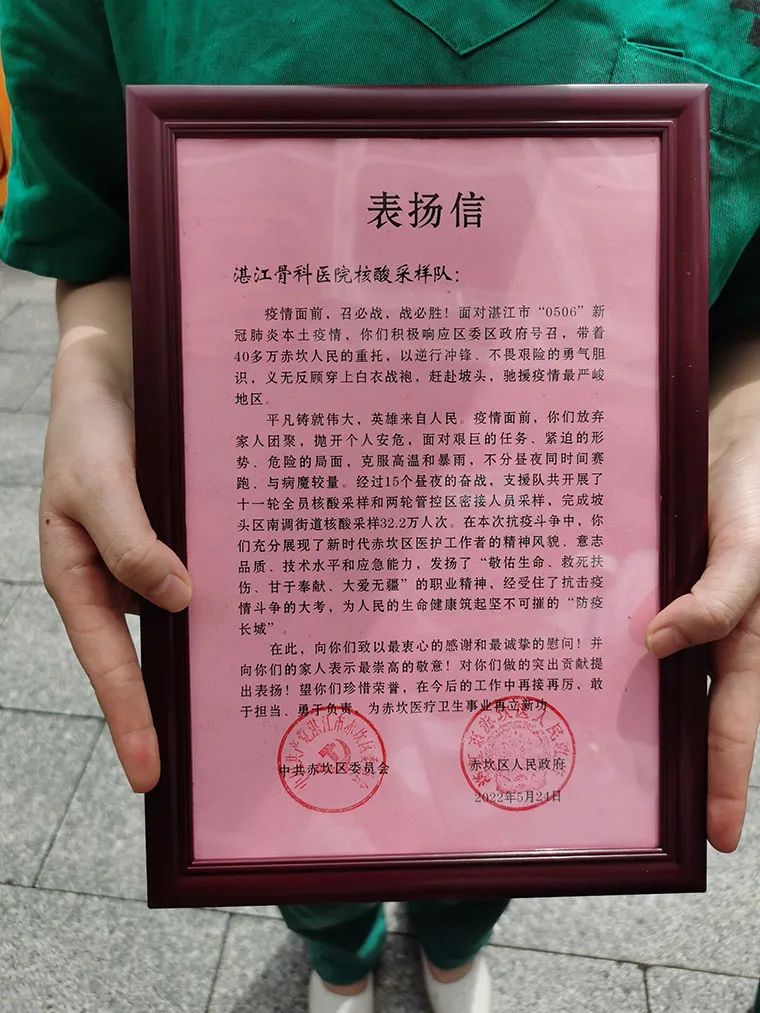 表扬信
湛江骨科医院核酸采样队：
疫情面前，召必战，战必胜！面对湛江市“0506”新
冠肺炎本土疫情，你们积极响应区委区政府号召，带着
40多万赤坎人民的重托，以逆行冲锋、不畏艰险的勇气胆
识，义无反顾穿上白衣战袍，赶赴坡头，驰援疫情最严峻
地区。
平凡铸就伟大，英雄来自人民。疫情面前，你们放弃
家人团聚，抛开个人安危，面对艰巨的任务、紧迫的形
势、危险的局面，克服高温和暴雨，不分昼夜同时间赛
跑、与病魔较量。经过15个昼夜的奋战，支援队共开展了
十一轮全员核酸采样和两轮管控区密接人员采样，完成坡
头区南调街道核酸采样32.2万人次。在本次抗疫斗争中，你
们充分展现了新时代赤坎区医护工作者的精神风貌、意志
品质、技术水平和应急能力，发扬了“敬佑生命、救死扶
伤、甘于奉献、大爱无疆”的职业精神，经受住了抗击疫
情斗争的大考，为人民的生命健康筑起坚不可摧的“防疫
长城”。
在此，向你们致以最衷心的感谢和最诚挚的慰问！并
向你们的家人表示最崇高的敬意！对你们做的突出贡献提
出表扬！望你们珍惜荣誉，在今后的工作中再接再厉，敢
于担当、勇于负责，为赤坎医疗卫生事业再立新功
中国共产党湛江市赤坎区委员会
中共赤坎区委员会
湛江市赤坎区人民政府
赤坎区人民政府
2022年5月24日